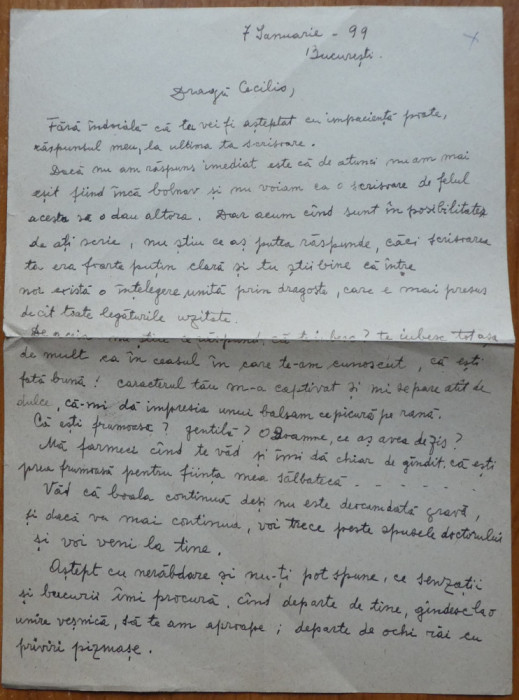 7 Ianuarie - 99
București.
Dragă Cecilio,
Fără îndoială că tu vei fi așteptat cu impaciență poate,
răspunsul meu, la ultima ta scrisoare.
Dacă nu am răspuns imediat este că de atunci nu am mai
eșit fiind încă bolnav și nu voiam ca o scrisoare de felul
acesta să o dau altora. Dar acum cînd sunt în posibilitatea
de ați scrie, nu știu ce aș putea răspunde, căci scrisoarea
ta era foarte puțin clară și tu știi bine că între
noi există o înțelegere, unită prin dragoste, care e mai presus
decît toate legăturile uzitate.
De aceia nu știu ce răspund, că te iubesc? te iubesc tot așa
de mult ca în ceasul în care te-am cunoscut, că ești
fată bună! caracterul tău m-a captivat și mi se pare atît de
dulce, că-mi dă impresia unui balsam ce picură pe rană.
Că ești frumoasă? gentilă? O Doamne, ce aș avea de zis?
Mă farmeci cînd te văd și îmi dă chiar de gîndit că ești
prea frumoasă pentru ființa mea sălbatică . - . - . - . - . -
Văd că boala continuă deși nu este deocamdată gravă,
și dacă va mai continua, voi trece peste spusele doctorului
și voi veni la tine.
Aștept cu nerăbdare și nu-ți pot spune, ce senzații
și bucurii îmi procură, cînd departe de tine, gîndesc la o
unire veșnică, să te am aproape; departe de ochi răi cu
priviri pizmașe.